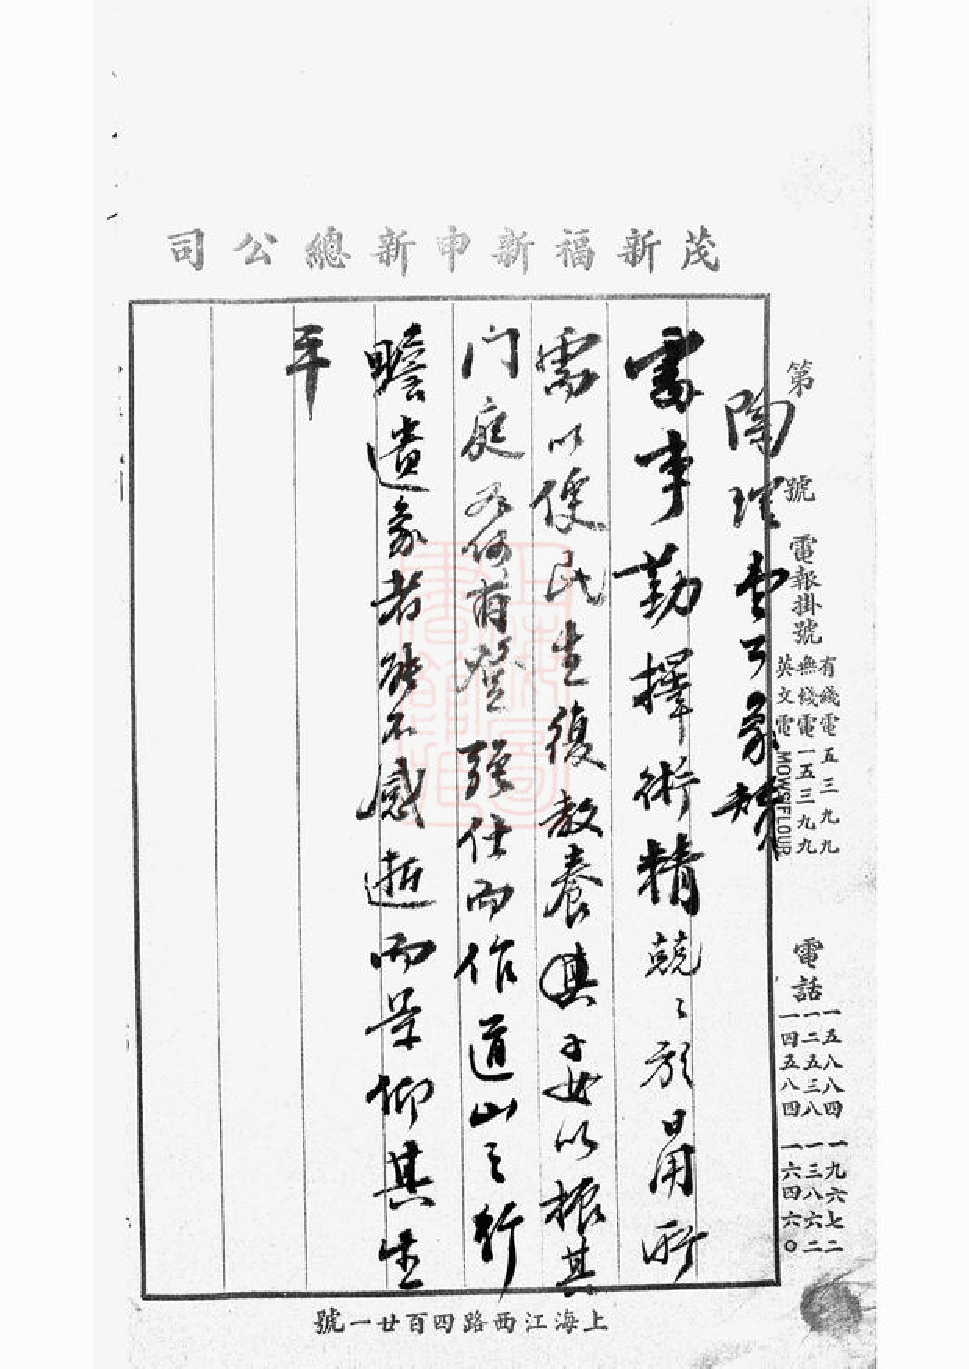 茂新福新申新總公司
第 號 電報掛號
有綫電 五三九九
無綫電 一五三九九
英文電 MOWSFLOUR
電話
一五八八四 一九六七二
一二五三八 一三八六二
一四五八四 一六四六〇
陶 公家
事勤擇術精兢〻於日用所
需以便民生復教養其子女以振其
门庭 何甫登强仕而作道山之行
瞻遺象者能不感逝而景仰其生
平
上海江西路四百廿一號